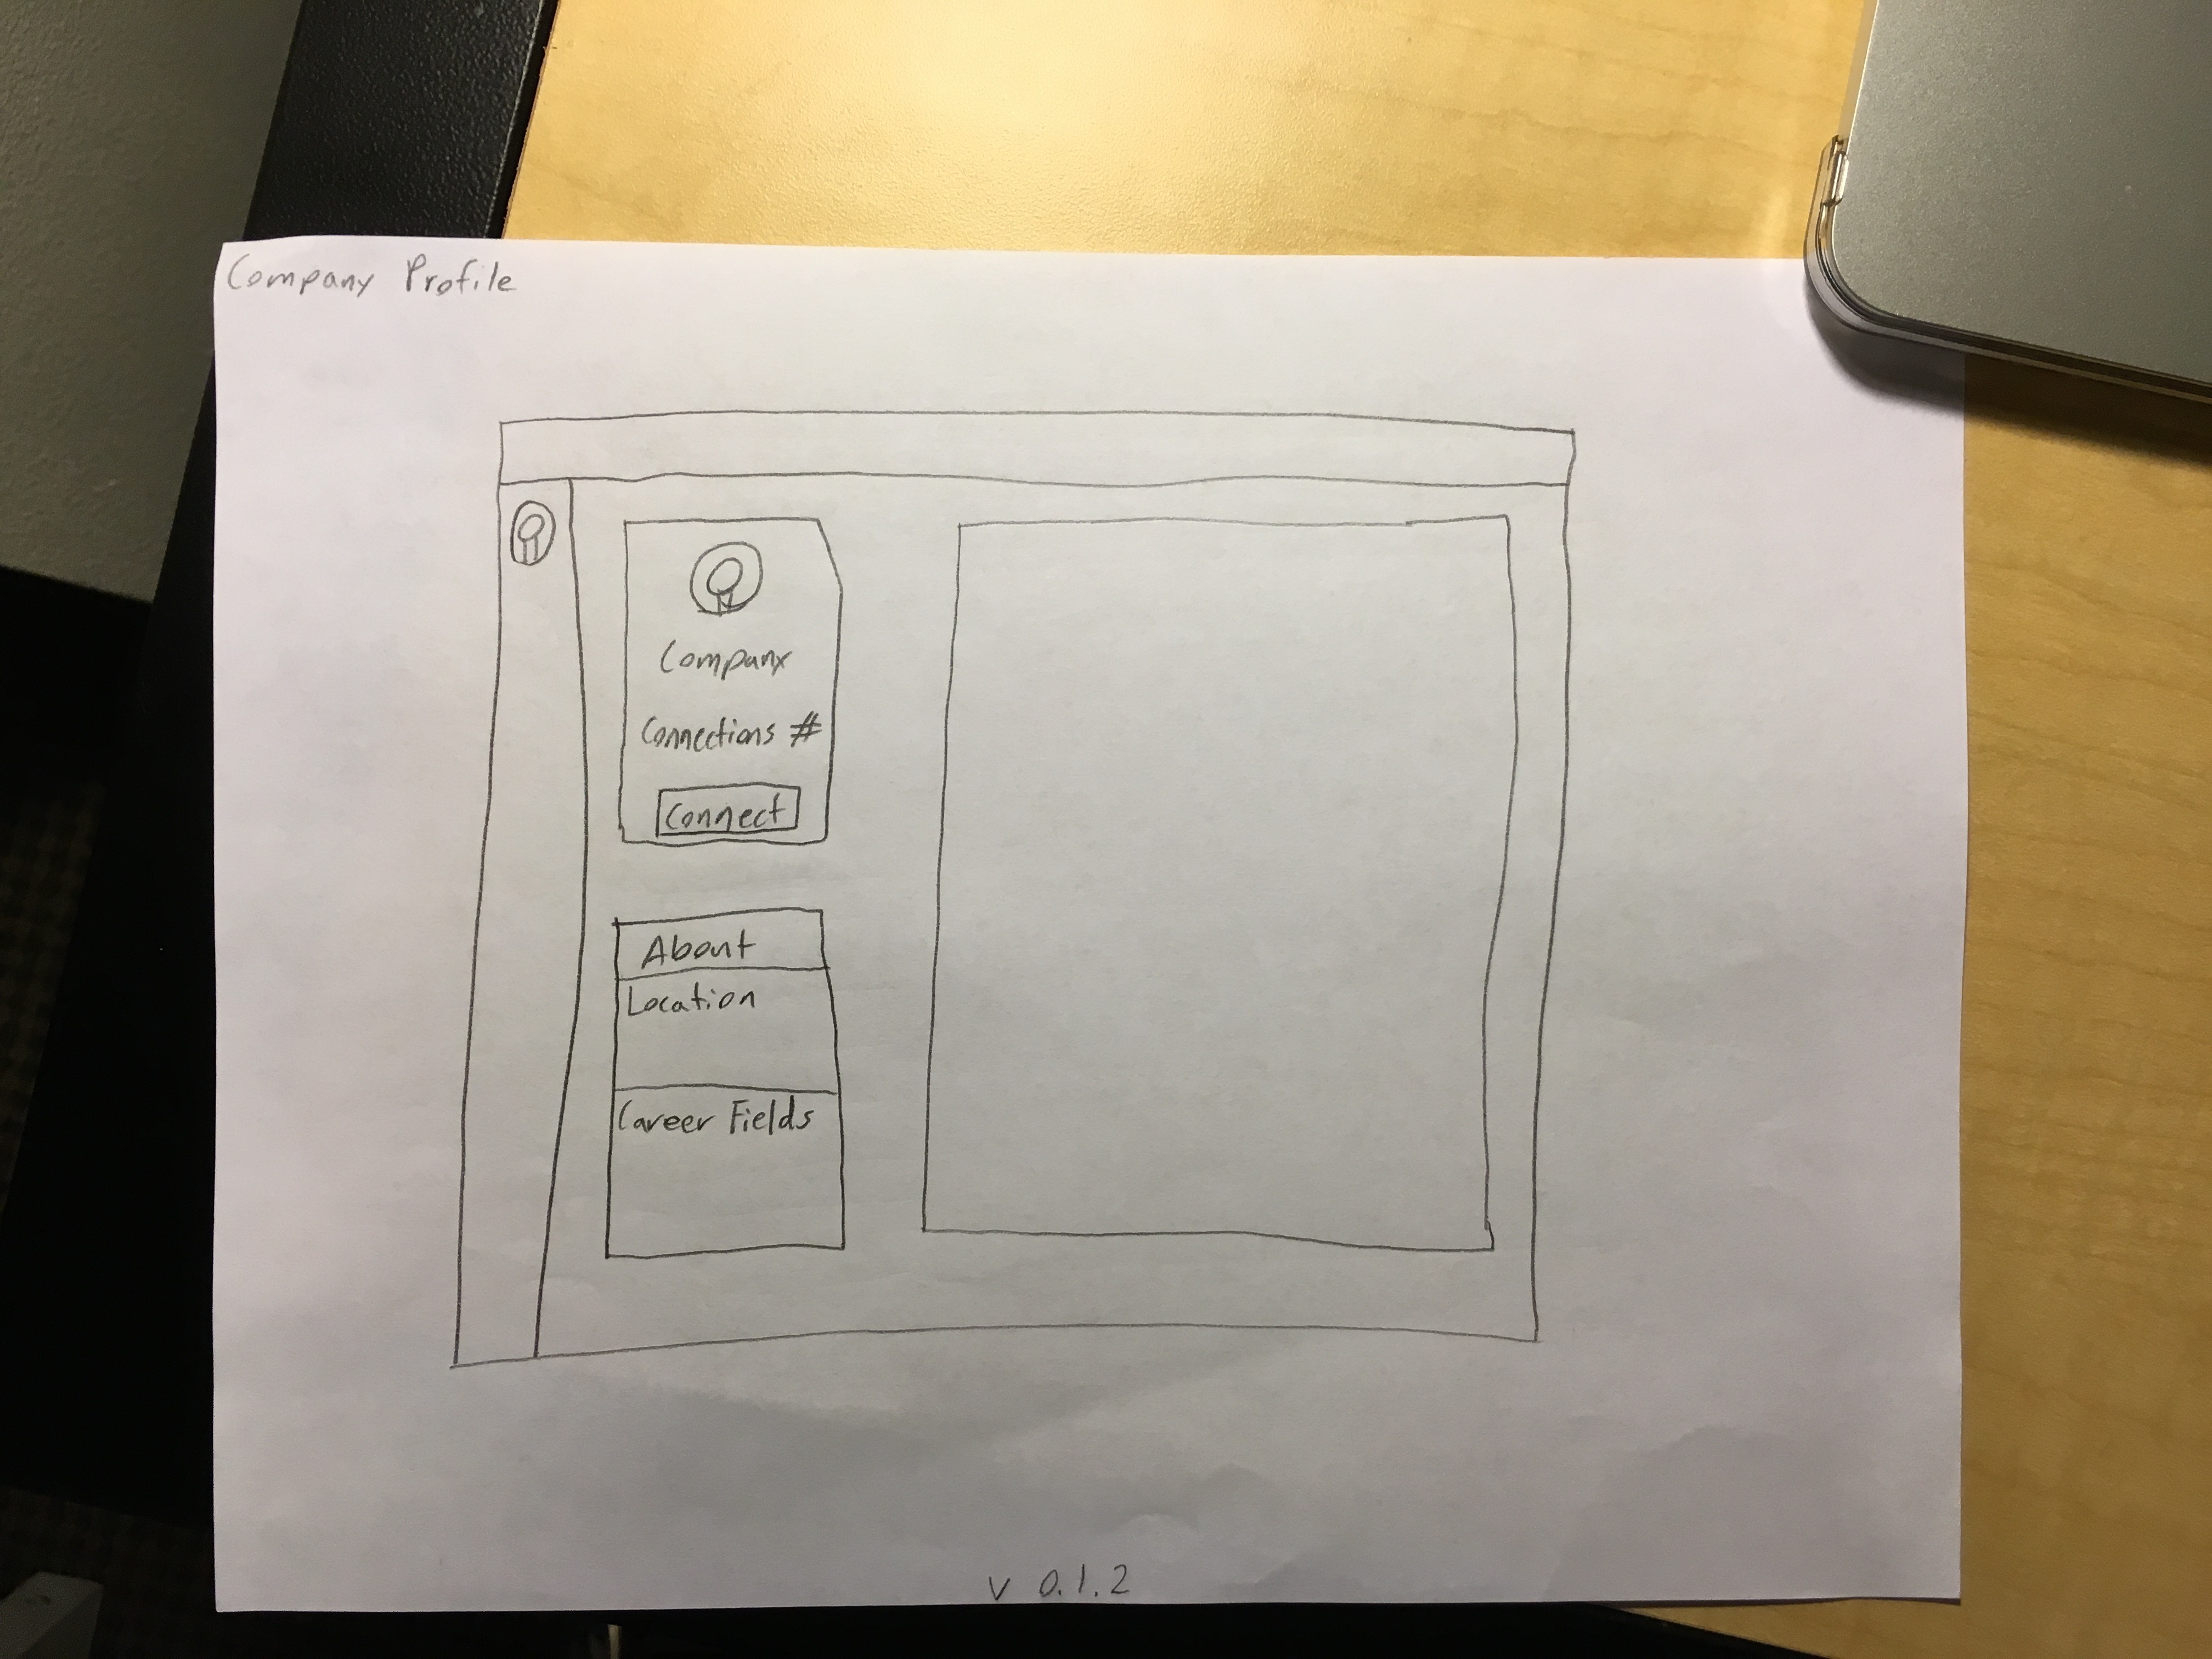 Company Profile
Company
Connections #
Connect
About
Location
Career Fields
v 0.1.2